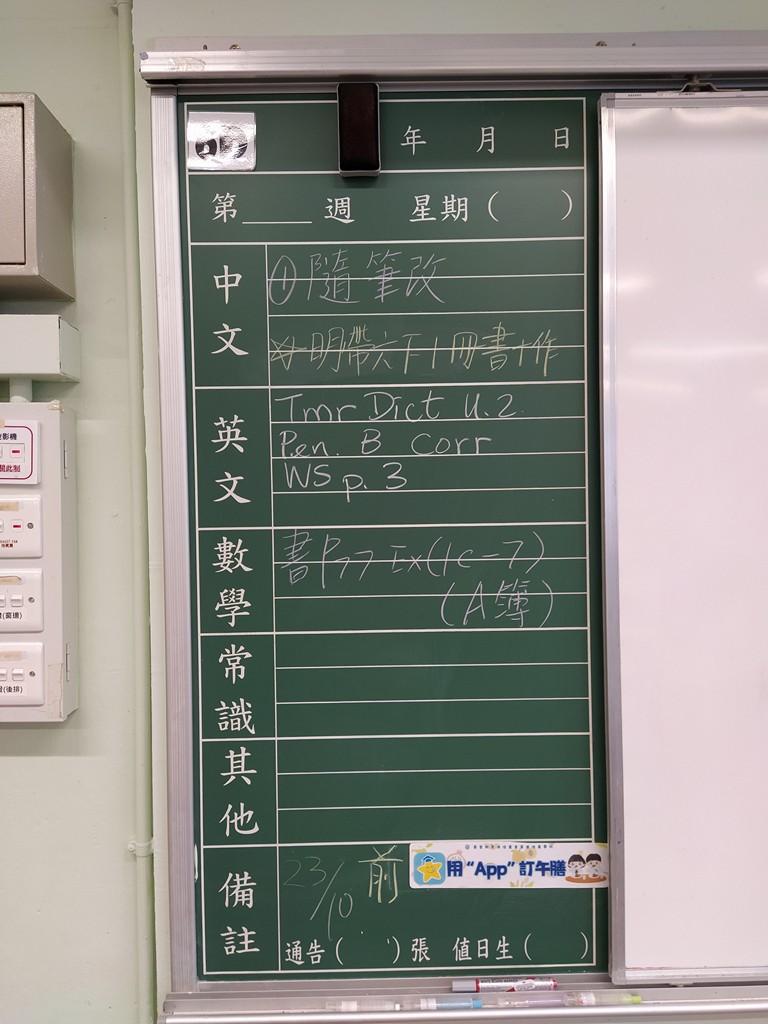 年 月 日
第____週 星期( )
中文
①隨筆改
明帶六下1冊書+作
英文
Tmr Dict U.2
Pen. B Corr
WS p. 3
數學
書P77 Ex(1c-7)
(A簿)
常識
其他
備註
23/10 前
用“App”訂午膳
通告( )張 值日生( )
影機
(窗邊)
(後排)